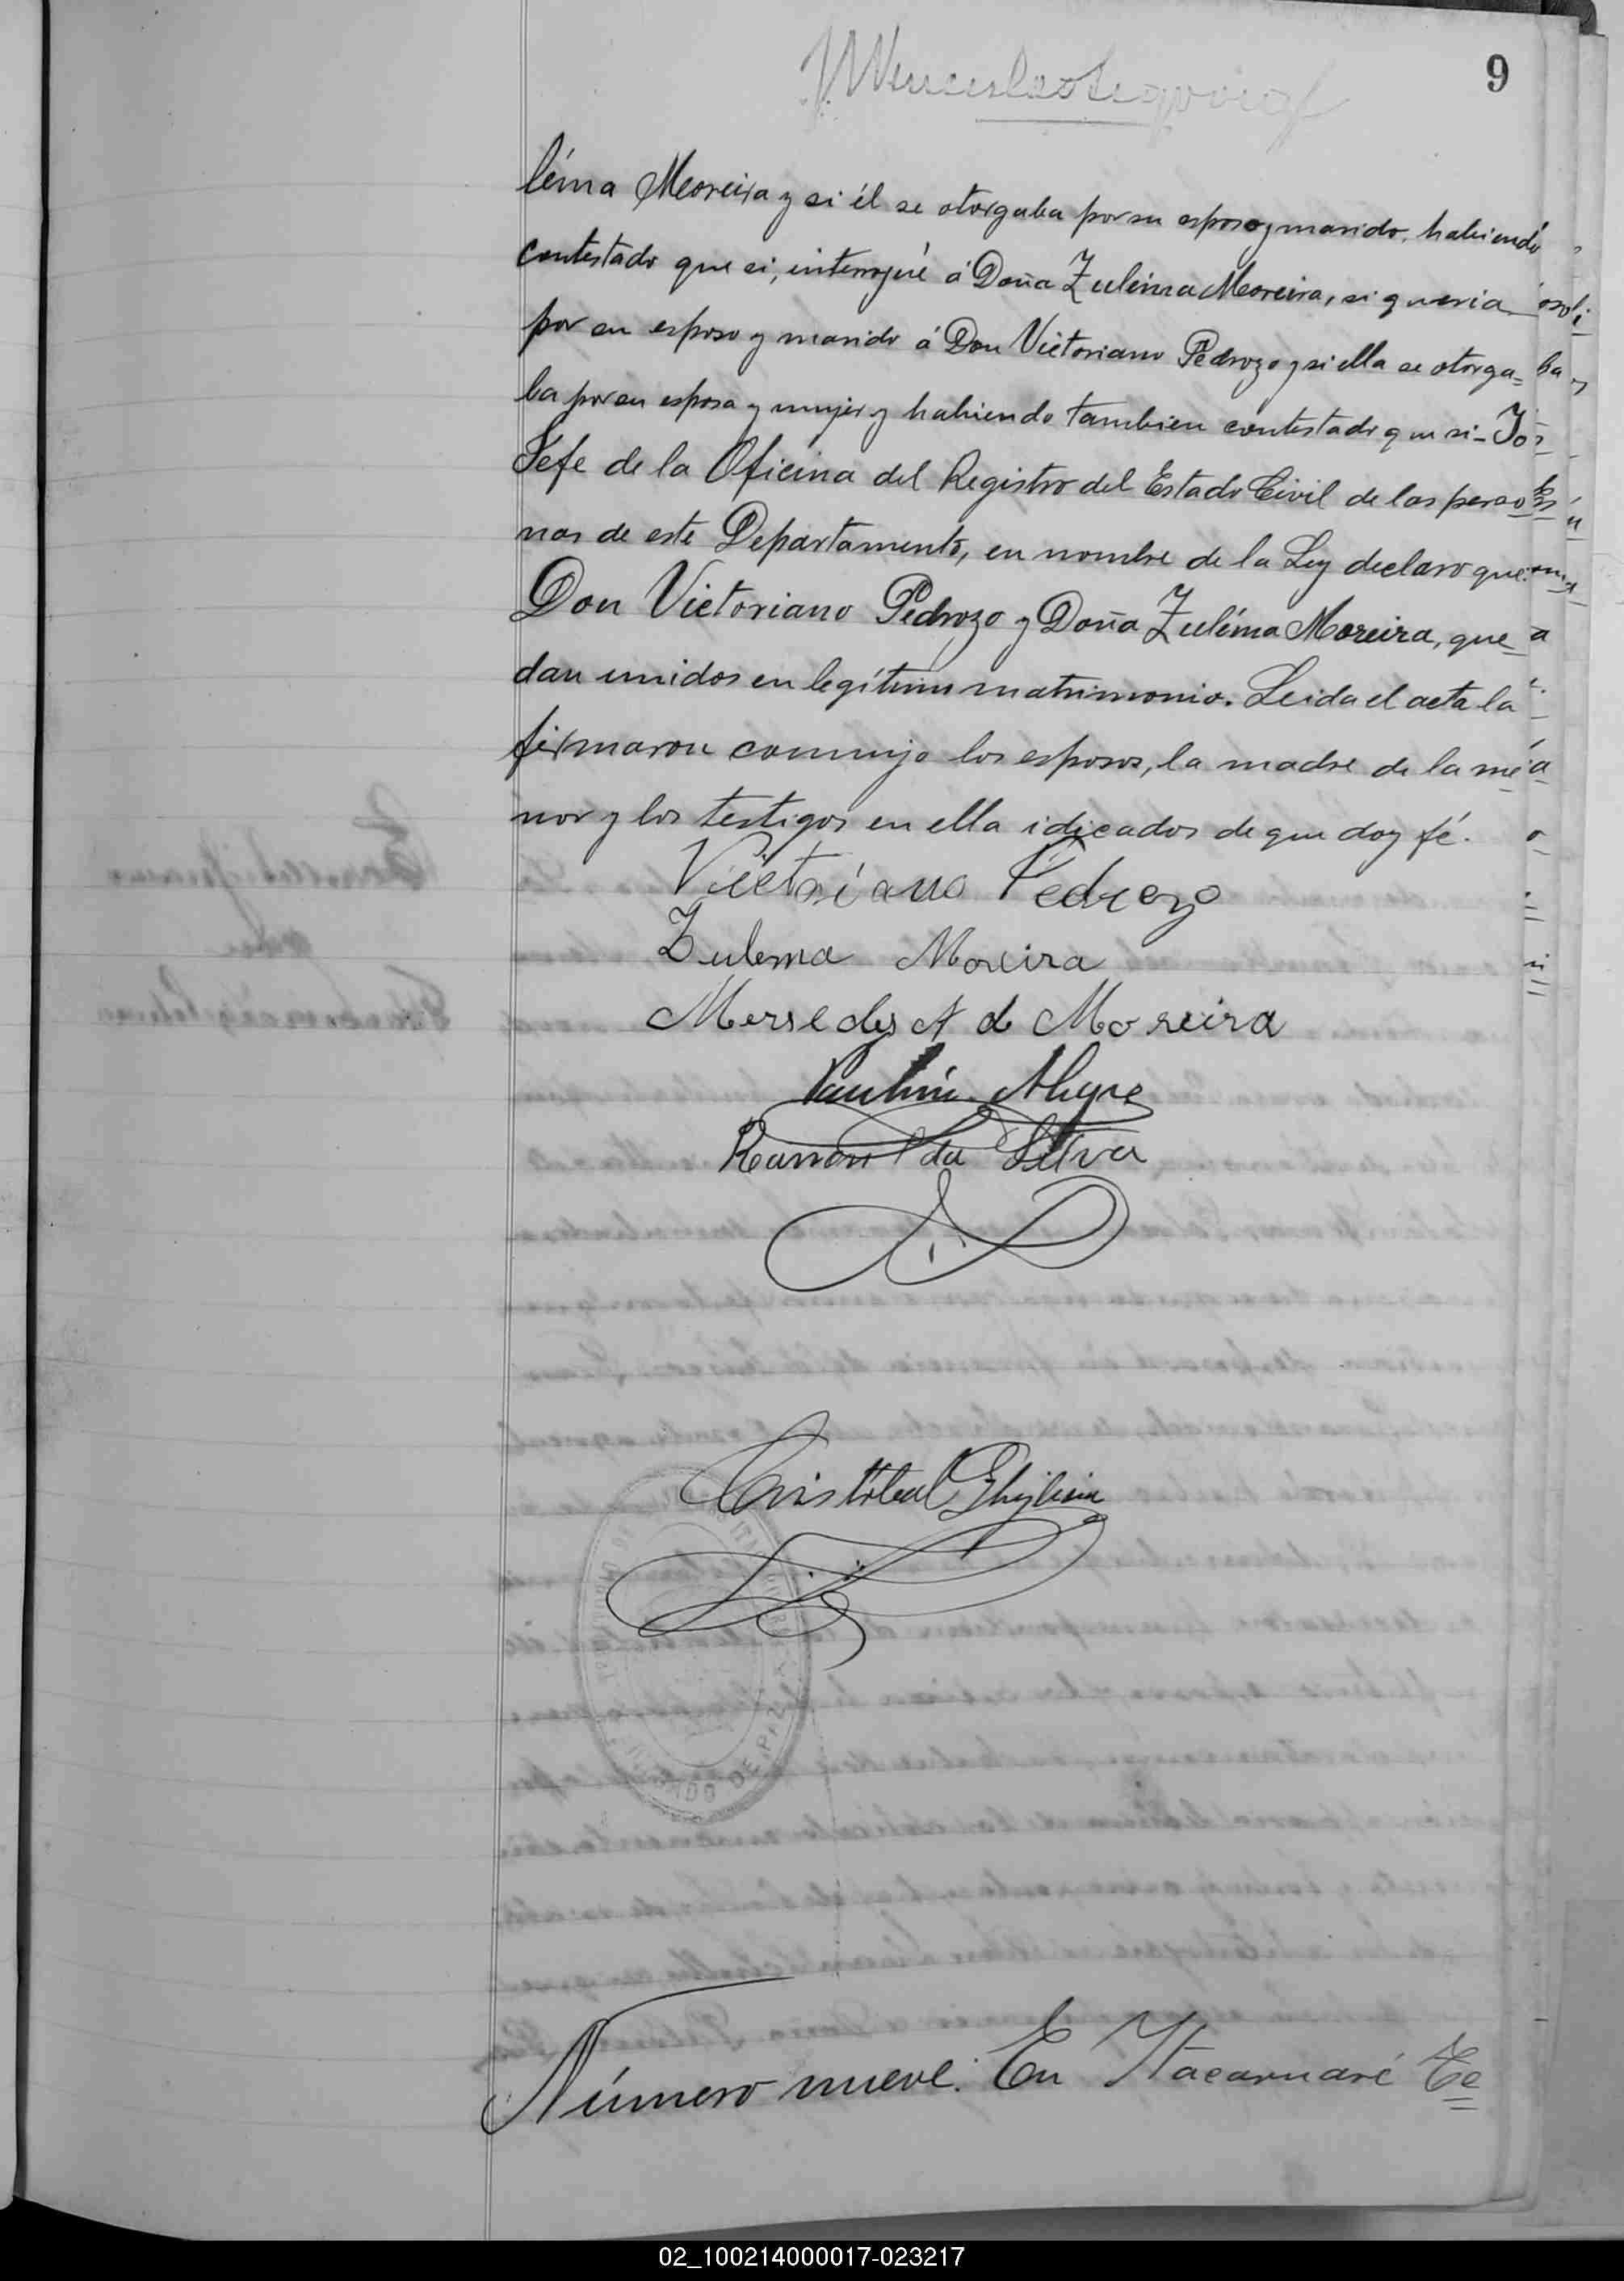 9
léma Moreira y si él se otorgaba por su esposo y marido, habiendo
contestado que si, interrogué á Doña Zuléma Moreira, si queria
por su esposo y marido á Don Victoriano Pedrozo y si ella se otorga=
ba por su esposa y mujer y habiendo tambien contestado que si- Yo
Jefe de la Oficina del Registro del Estado Civil de las perso
nas de este Departamento, en nombre de la Ley declaro que:
Don Victoriano Pedrozo y Doña Zuléma Moreira, que
dan unidos en legítimo matrimonio. Leida el acta la
firmaron conmigo los esposos, la madre de la me
nor y los testigos en ella idicados de que doy fé.
Victoriano Pedrozo
Zulema Moreira
Mersedes A de Moreira
Paulino Alegre
Ramon da Silva
Cristóbal
JUZGADO DE PAZ
Número nueve. En Itacaruaré Te
02_100214000017-023217